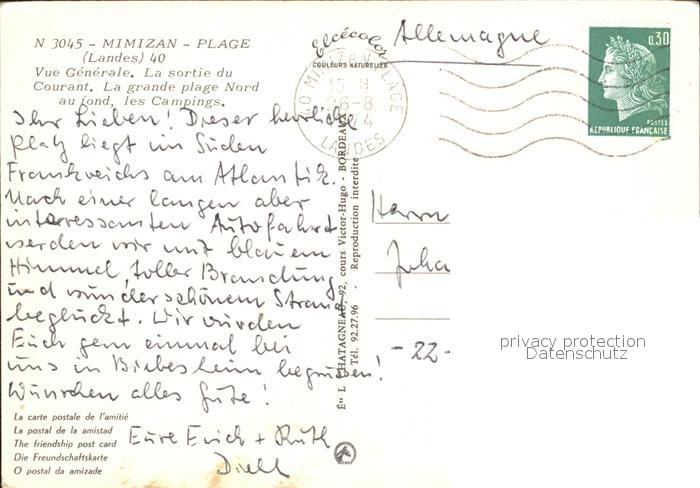 N 3045 - MIMIZAN - PLAGE
(Landes) 40
Vue Générale. La sortie du
Courant. La grande plage Nord
au fond, les Campings.
Elcécolor
COULEURS NATURELLES
Allemagne
MIMIZAN PLAGE
26-8
LANDES
0,30
POSTES
REPUBLIQUE FRANÇAISE
Ihr Lieben! Dieser herrliche
Platz liegt im Süden
Frankreichs am Atlantik.
Nach einer langen aber
interessanten Autofahrt
werden wir mit blauem
Himmel, toller Brandung
und wunderschönem Strand
beglückt. Wir würden
Euch gern einmal bei
uns in Biebesheim begrüssen!
Wünschen alles Gute!
Eure Erich + Ruth
Diehl
La carte postale de l'amitié
La postal de la amistad
The friendship post card
Die Freundschaftskarte
O postal da amizade
Éts L. CHATAGNEAU, 92, cours Victor-Hugo - BORDEAUX
Tél. 92.27.96 - Reproduction interdite
Herrn
- 22 -
privacy protection
Datenschutz